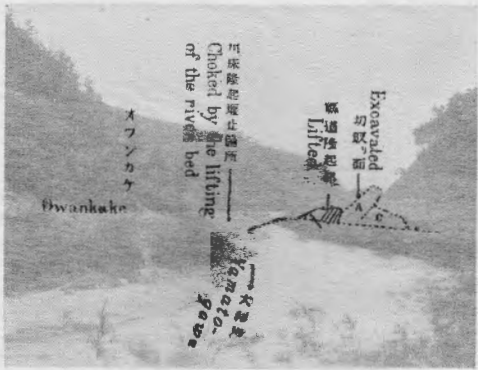 Excavated
切取面
A
縣道隆起部
Lifted
川床隆起堰止箇所
Choked by the lifting
of the river bed
オワンカケ
Owankake
大和川
Yamato-
gawa